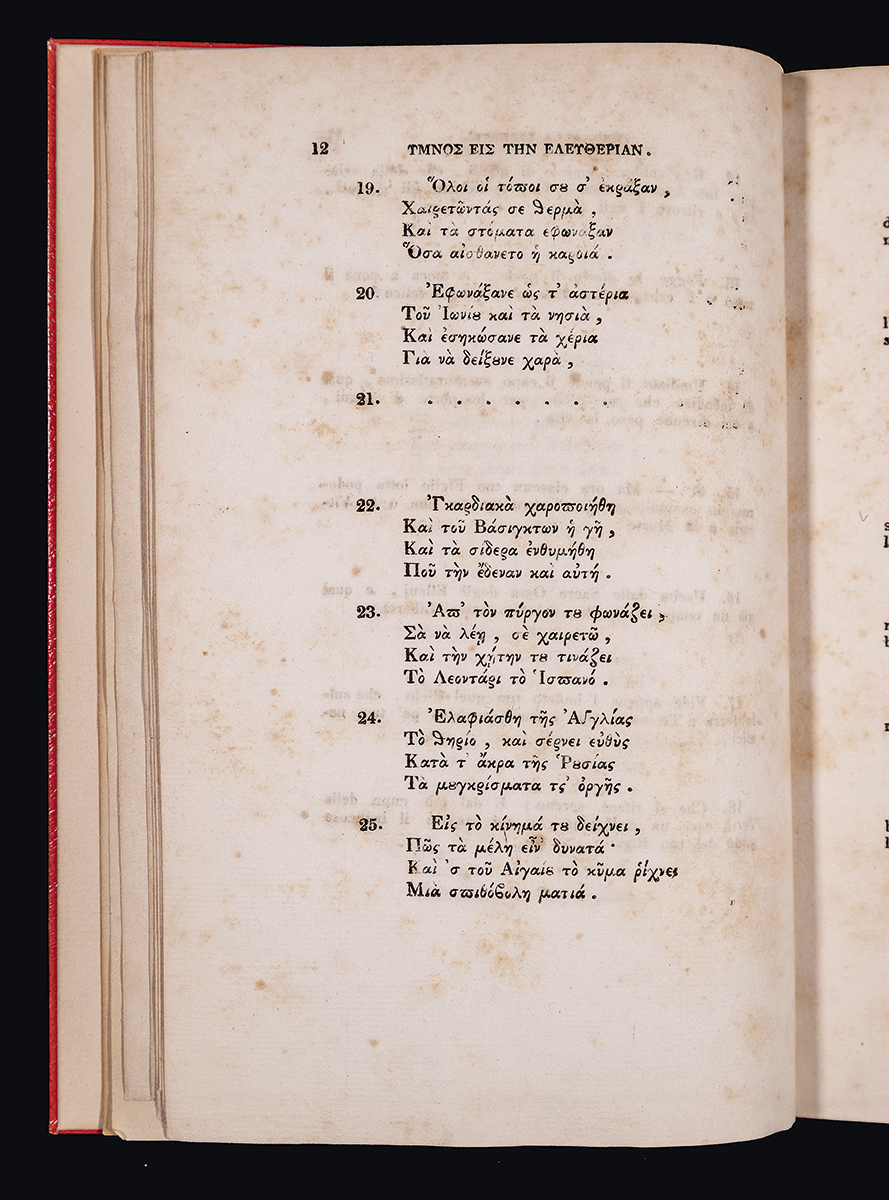 12 ΥΜΝΟΣ ΕΙΣ ΤΗΝ ΕΛΕΥΘΕΡΙΑΝ.
19. Ὅλοι οἱ τόϖοι σȣ σ' ἐκραξαν,
Χαιρετῶντάς σε θερμὰ,
Καὶ τὰ στόματα εφωναξαν
Ὅσα αἰσθανετο ἡ καρδιά.
20 Ἐφωνάξανε ὡς τ' ἀστέρια
Τοῦ Ἰωνίȣ καὶ τὰ νησιὰ,
Καὶ ἐσηκώσανε τὰ χέρια
Γιὰ νὰ δείξȣνε χαρὰ,
21. . . . . . . .
22. Ἐγκαρδιακὰ χαροϖοιήθη
Καὶ τοῦ Βάσιγκτων ἡ γῆ,
Καὶ τὰ σίδερα ἐνθυμήθη
Ποῦ τὴν ἔδεναν καὶ αὐτή.
23. Ἀϖ' τὸν πύργον τȣ φωνάζει,
Σὰ νὰ λέῃ, σὲ χαιρετῶ,
Καὶ τὴν χήτην τȣ τινάζει
Τὸ Λεοντάρι τὸ Ἱσϖανό.
24. Ἐλαφιάσθη τῆς Ἀγγλίας
Τὸ θηρίο, καὶ σέρνει εὐθὺς
Κατὰ τ' ἄκρα τῆς Ῥȣσίας
Τὰ μȣγκρίσματα τς' ὀργῆς.
25. Εἰς τὸ κίνημά τȣ δείχνει,
Πῶς τὰ μέλη εἶν' δυνατά·
Καὶ 'σ τοῦ Αἰγαίȣ τὸ κῦμα ῥίχνει
Μιὰ σϖιθόβολη ματιά.